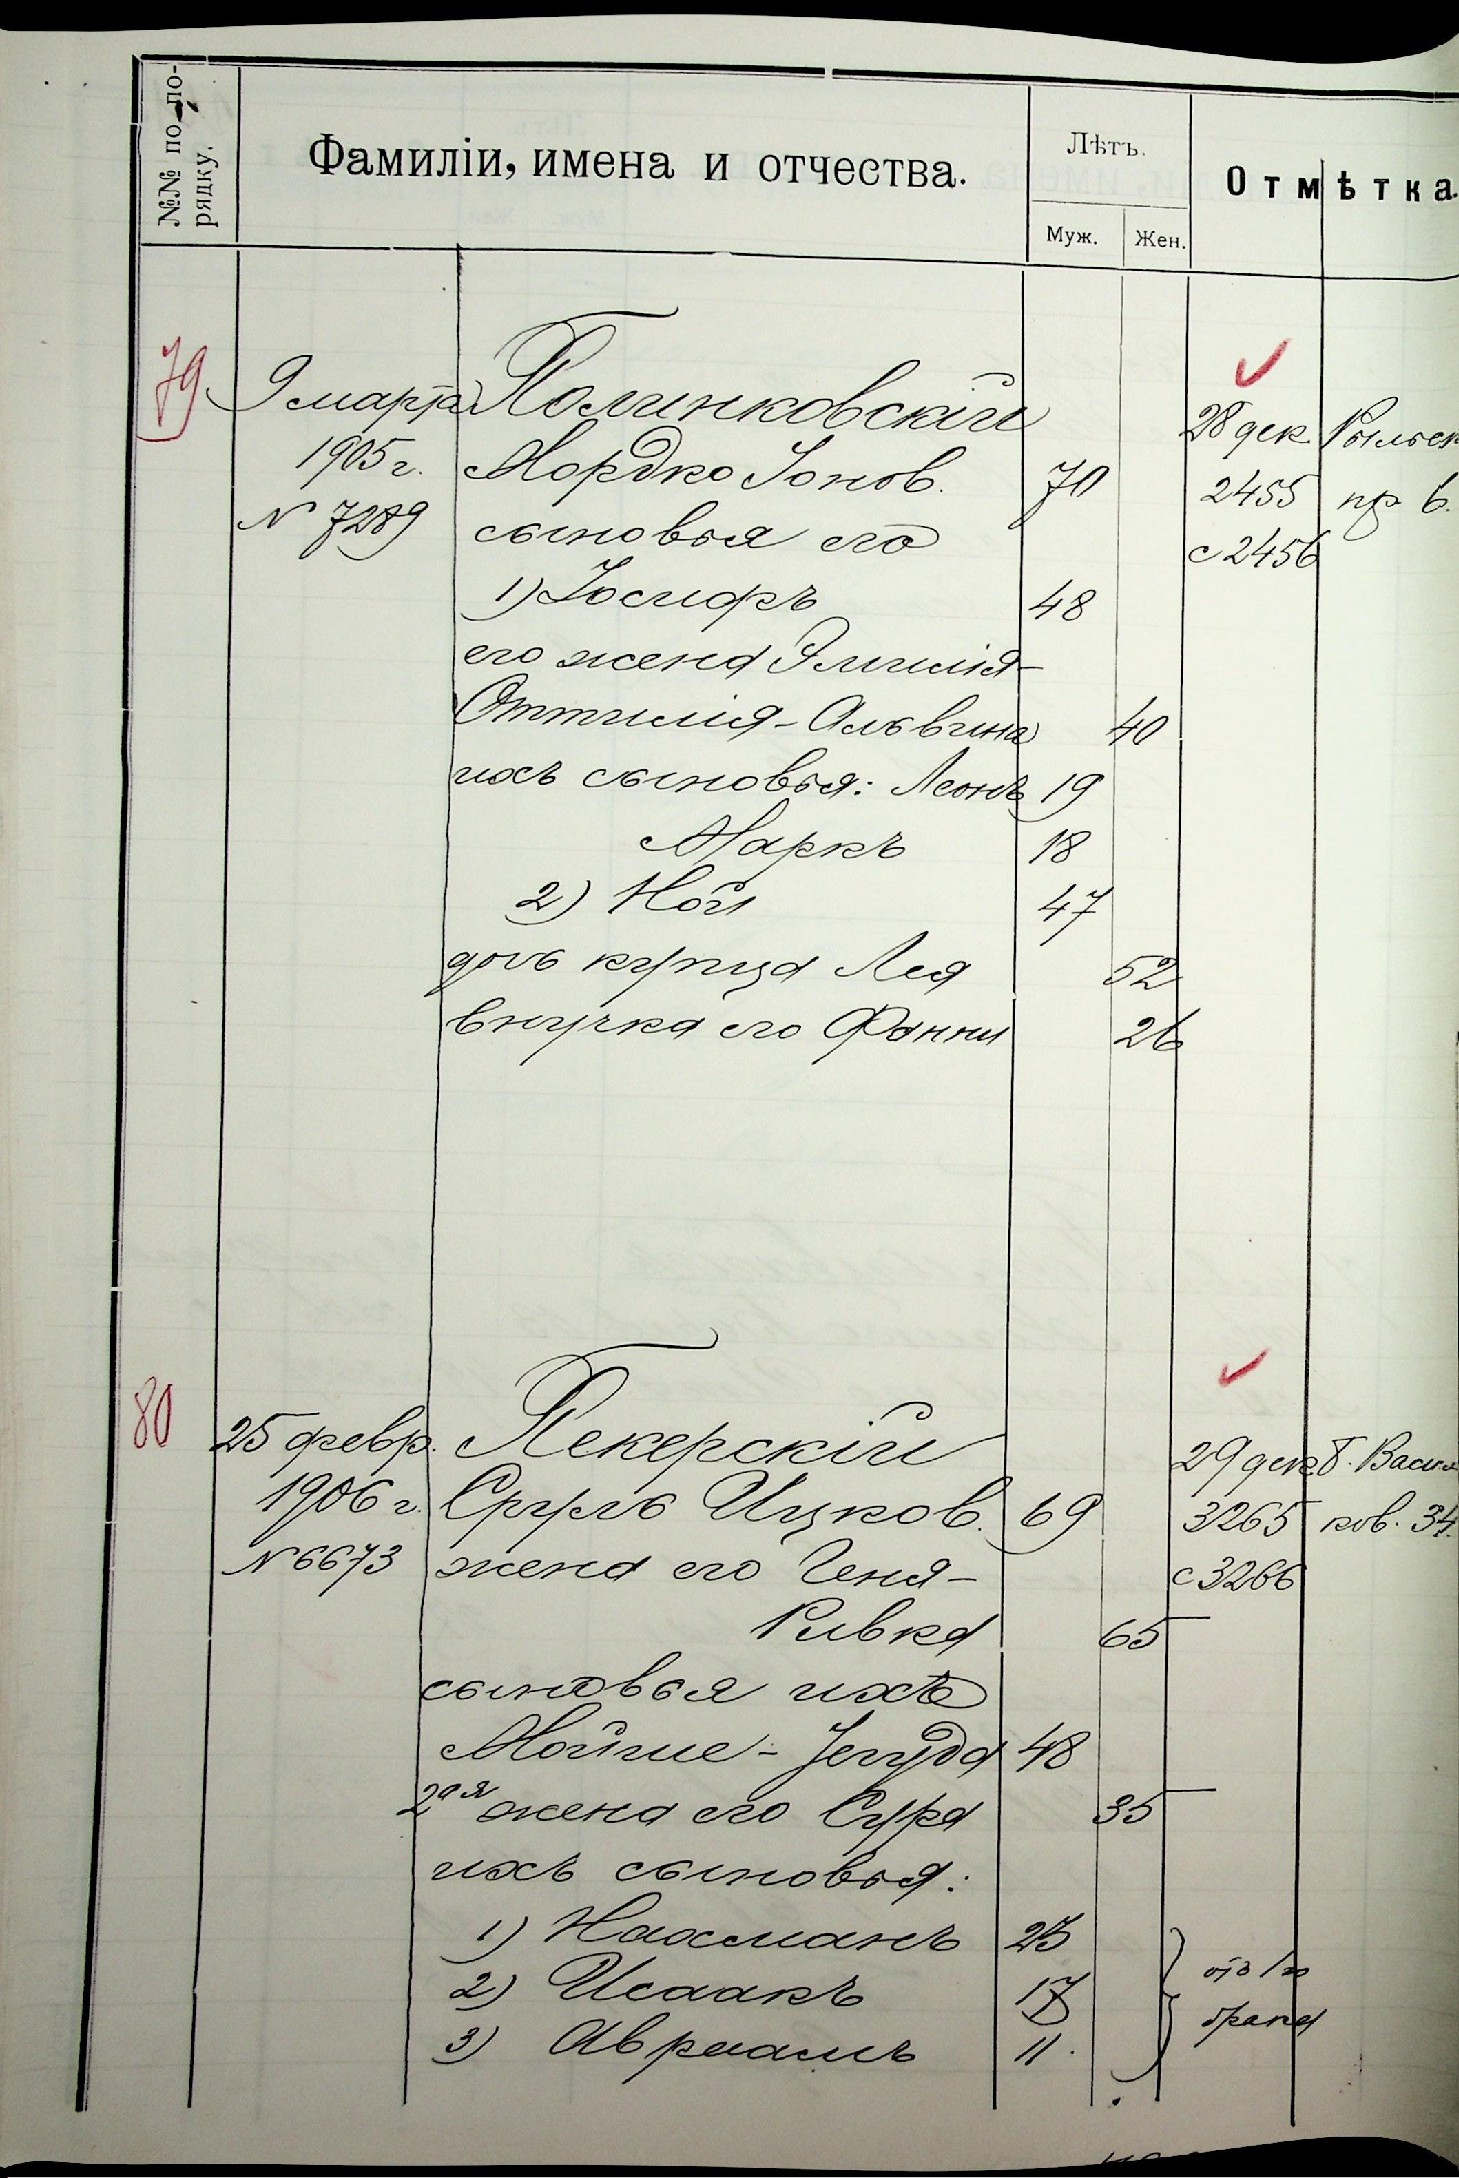 №№ по по-
рядку.
Фамиліи, имена и отчества.
Лѣтъ.
Муж.
Жен.
Отмѣтка.
79
9 марта Полинковскій 28 дек. Рыльск
1905 г. Мордко Іонов. 70 2455 пр 6.
№ 7289 сыновья его с 2456
1) Іосифъ 48
его жена Эмилія-
Оттилія-Альвина 40
ихъ сыновья: Леонъ 19
Маркъ 18
2) Ной 47
дочь купца Лея 52
внучка его Фанни 26
80
25 февр. Пекерскій 29 дек Б. Васил
1906 г. Сруль Ицков. 69 3265 ков. 34.
№ 6673 жена его Геня- с 3266
Ривка 65
сыновья ихъ
Мойше-Іегуда 48
2ая жена его Сура 35
ихъ сыновья:
1) Нахманъ
2) Исаакъ 17
3) Авраамъ 11.
брака